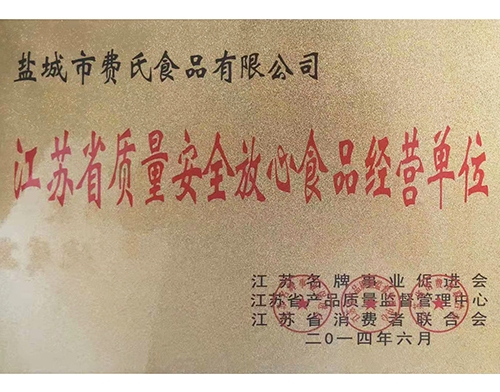 盐城市费氏食品有限公司
江苏省质量安全放心食品经营单位
江苏名牌事业促进会
江苏省产品质量监督管理中心
江苏省消费者联合会
二〇一四年六月